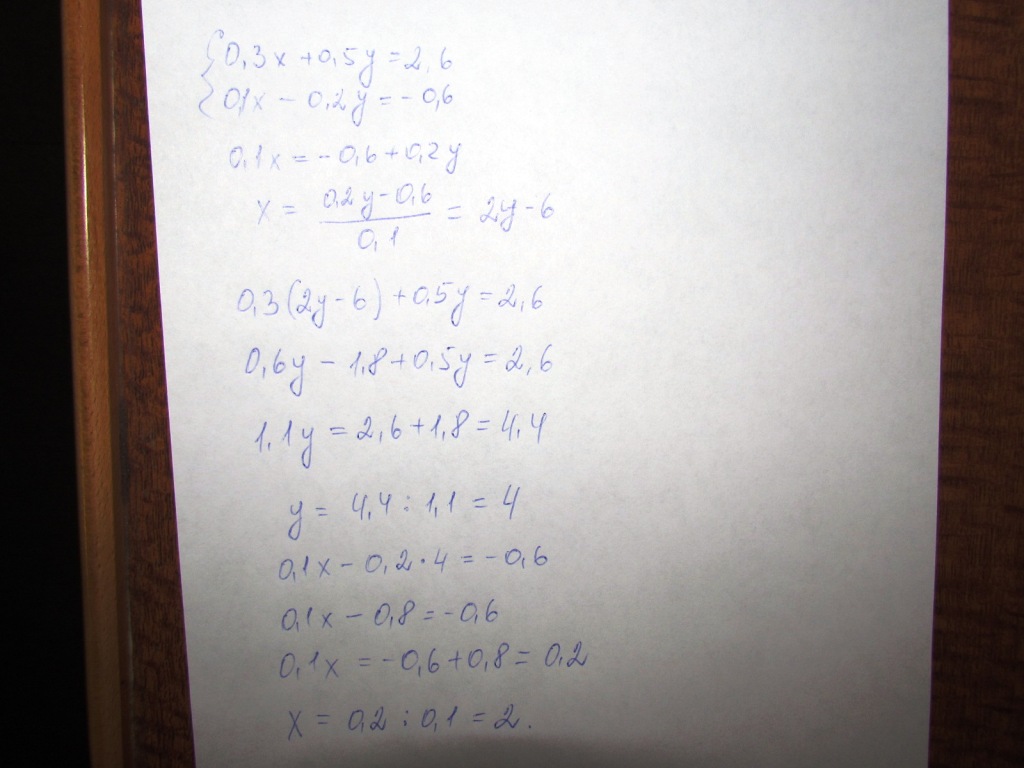 {0,3x + 0,5y = 2,6
{0,1x - 0,2y = - 0,6
0,1x = - 0,6 + 0,2y
x = (0,2y - 0,6)/0,1 = 2y - 6
0,3(2y - 6) + 0,5y = 2,6
0,6y - 1,8 + 0,5y = 2,6
1,1y = 2,6 + 1,8 = 4,4
y = 4,4 : 1,1 = 4
0,1x - 0,2 · 4 = - 0,6
0,1x - 0,8 = - 0,6
0,1x = - 0,6 + 0,8 = 0,2
x = 0,2 : 0,1 = 2.